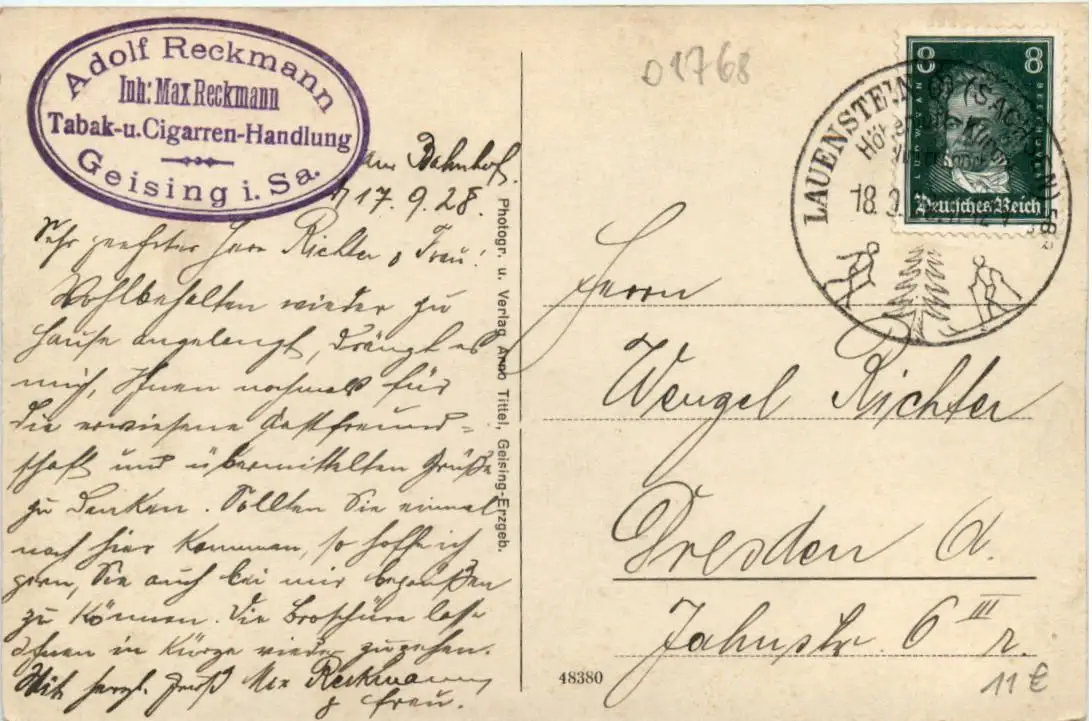 Adolf Reckmann
Inh: Max Reckmann
Tabak-u.Cigarren-Handlung
Geising i. Sa.
am Bahnhof.
17. 9. 28.
Sehr geehrter Herr Richter u Frau!
Wohlbehalten wieder zu
Hause angelangt, drängt es
mich, Ihnen nochmals für
die erwiesene Gastfreund=
schaft und übermittelten Grüße
zu danken. Sollten Sie einmal
nach hier kommen, so hoffe ich
gern, Sie auch bei mir begrüßen
zu können. Die Broschüre lasse
Ihnen in Kürze wieder zugehen.
Mit herzl. Gruß Max Reckmann
u Frau.
Photogr. u. Verlag Arno Tittel, Geising-Erzgeb.
48380
01768
8 8
LUDWIG VAN BEETHOVEN
Deutsches Reich
LAUENSTEIN (SACHSEN)
18.9.
Herrn
Wenzel Richter
Dresden A.
Jahnstr. 6 III r.
11 €